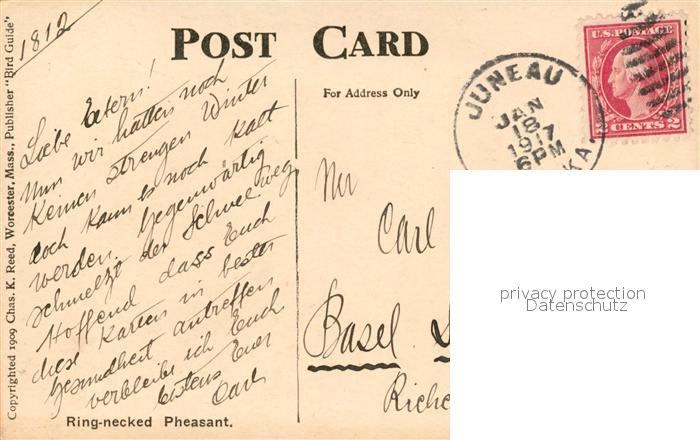 1812
POST CARD
For Address Only
Copyrighted 1909 Chas. K. Reed, Worcester, Mass., Publisher "Bird Guide"
Liebe Eltern!
Nun wir hatten noch
keinen strengen Winter
doch kann es noch kalt
werden. Gegenwärtig
schmelzt der Schnee weg
Hoffend dass Euch
diese Karten in bester
Gesundheit antreffen
verbleibe ich Euch
bestens Euer
Carl
Ring-necked Pheasant.
JUNEAU
JAN
18
1917
6PM
KA.
U.S. POSTAGE
2 CENTS 2
Mr
Carl
Basel
Riche
privacy protection
Datenschutz